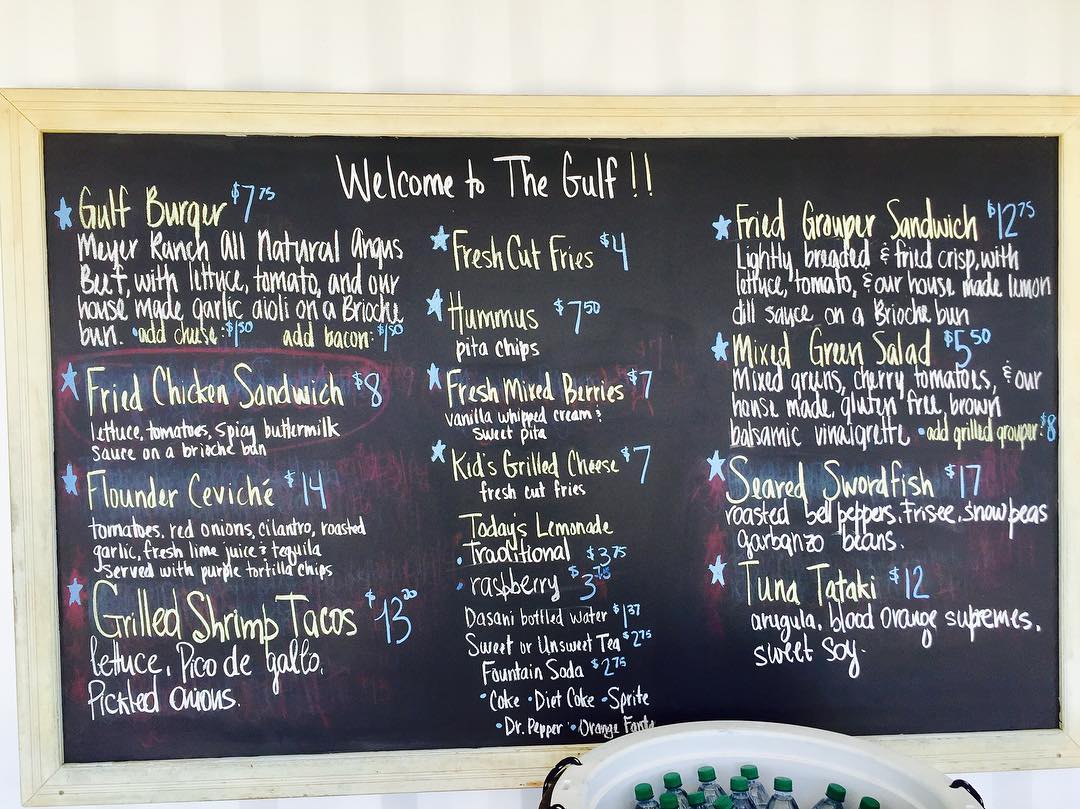 Welcome to The Gulf !!
Gulf Burger $7 75
Meyer Ranch All Natural Angus
Beef, with lettuce, tomato, and our
house made garlic aioli on a Brioche
bun. • add cheese: $1 50 add bacon: $1 50
Fried Chicken Sandwich $8
lettuce, tomatoes, spicy buttermilk
sauce on a brioche bun
Flounder Ceviché $14
tomatoes, red onions, cilantro, roasted
garlic, fresh lime juice & tequila
served with purple tortilla chips
Grilled Shrimp Tacos $13
lettuce, Pico de gallo,
Pickled onions.
Fresh Cut Fries $4
Hummus $7 50
pita chips
Fresh Mixed Berries $7
vanilla whipped cream &
sweet pita
Kid's Grilled Cheese $7
fresh cut fries
Today's Lemonade
• Traditional $3 75
• raspberry $3 75
Dasani bottled water $1 37
Sweet or Unsweet Tea $2 75
Fountain Soda $2 75
• Coke • Diet Coke • Sprite
• Dr. Pepper • Orange Fanta
Fried Grouper Sandwich $12 75
Lightly breaded & fried crisp, with
lettuce, tomato, & our house made lemon
dill sauce on a Brioche bun
Mixed Green Salad $5 50
Mixed greens, cherry tomatoes, & our
house made, gluten free, brown
balsamic vinaigrette • add grilled grouper: $8
Seared Swordfish $17
roasted bell peppers, frisee, snow peas
garbanzo beans.
Tuna Tataki $12
arugula, blood orange supremes,
sweet soy.